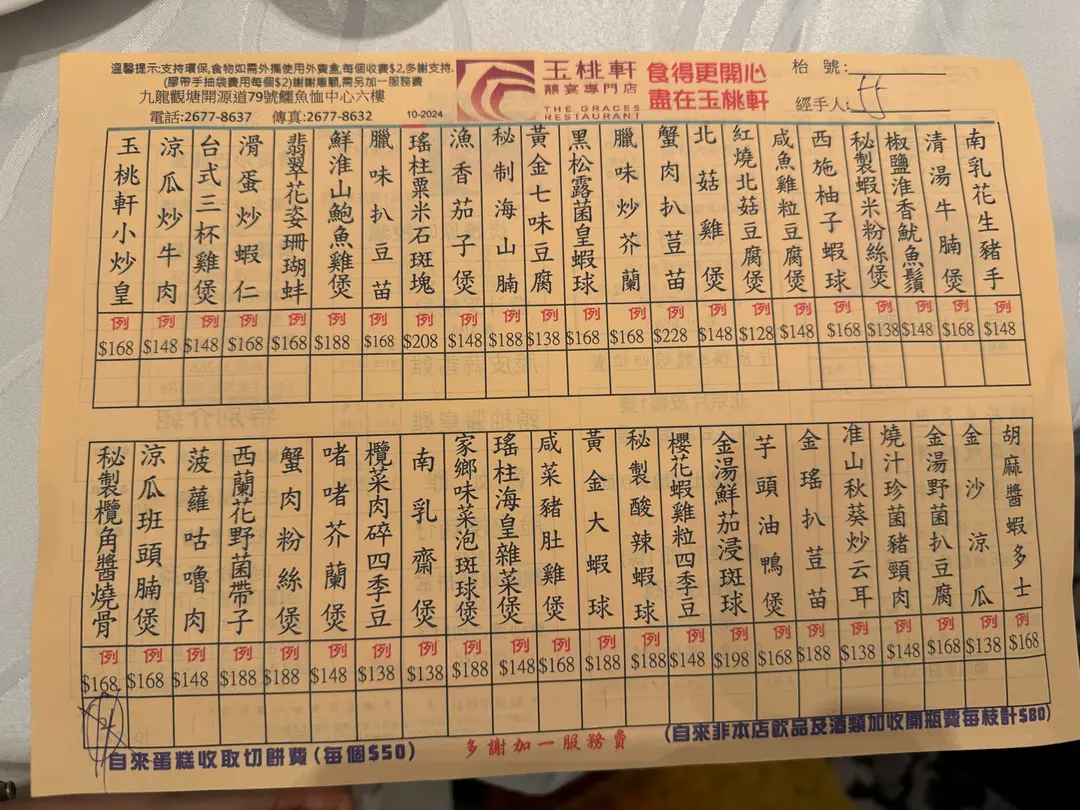 溫馨提示:支持環保,食物如需外攜使用外賣盒,每個收費$2,多謝支持.
(膠帶手抽袋費用每個$2)謝謝惠顧,需另加一服務費
九龍觀塘開源道79號鱷魚恤中心六樓
電話:2677-8637 傳真:2677-8632
10-2024
玉桃軒
囍宴專門店
THE GRACES
RESTAURANT
食得更開心
盡在玉桃軒
枱號:
經手人:
南乳花生豬手 例 $148
清湯牛腩煲 例 $168
椒鹽淮香魷魚鬚 例 $148
秘製蝦米粉絲煲 例 $138
西施柚子蝦球 例 $168
咸魚雞粒豆腐煲 例 $148
紅燒北菇豆腐煲 例 $128
北菇雞煲 例 $148
蟹肉扒荳苗 例 $228
臘味炒芥蘭 例 $168
黑松露菌皇蝦球 例 $168
黃金七味豆腐 例 $138
秘制海山腩 例 $188
漁香茄子煲 例 $148
瑤柱粟米石斑塊 例 $208
臘味扒豆苗 例 $168
鮮淮山鮑魚雞煲 例 $188
翡翠花姿珊瑚蚌 例 $168
滑蛋炒蝦仁 例 $168
台式三杯雞煲 例 $148
涼瓜炒牛肉 例 $148
玉桃軒小炒皇 例 $168
胡麻醬蝦多士 例 $168
金沙涼瓜 例 $138
金湯野菌扒豆腐 例 $168
燒汁珍菌豬頸肉 例 $148
准山秋葵炒云耳 例 $138
金瑤扒荳苗 例 $188
芋頭油鴨煲 例 $168
金湯鮮茄浸斑球 例 $198
櫻花蝦雞粒四季豆 例 $148
秘製酸辣蝦球 例 $188
黃金大蝦球 例 $188
咸菜豬肚雞煲 例 $168
瑤柱海皇雜菜煲 例 $148
家鄉味菜泡斑球煲 例 $188
南乳齋煲 例 $138
欖菜肉碎四季豆 例 $138
啫啫芥蘭煲 例 $148
蟹肉粉絲煲 例 $188
西蘭花野菌帶子 例 $188
菠蘿咕嚕肉 例 $148
涼瓜班頭腩煲 例 $168
秘製欖角醬燒骨 例 $168
自來蛋糕收取切餅費(每個$50)
多謝加一服務費
(自來非本店飲品及酒類加收開瓶費每枝計$80)